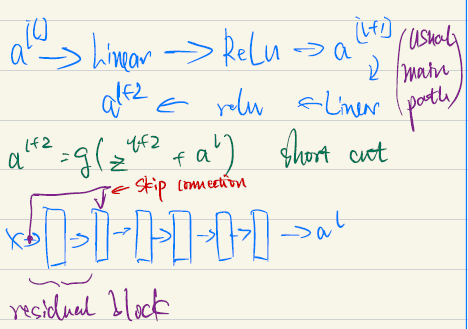 a^[l] → Linear → ReLu → a^[l+1]
(usual main path)
a^l+2 ← relu ← Linear
a^l+2 = g(z^l+2 + a^l) short cut
← skip connection
x → → → → → → → a^l
residual block